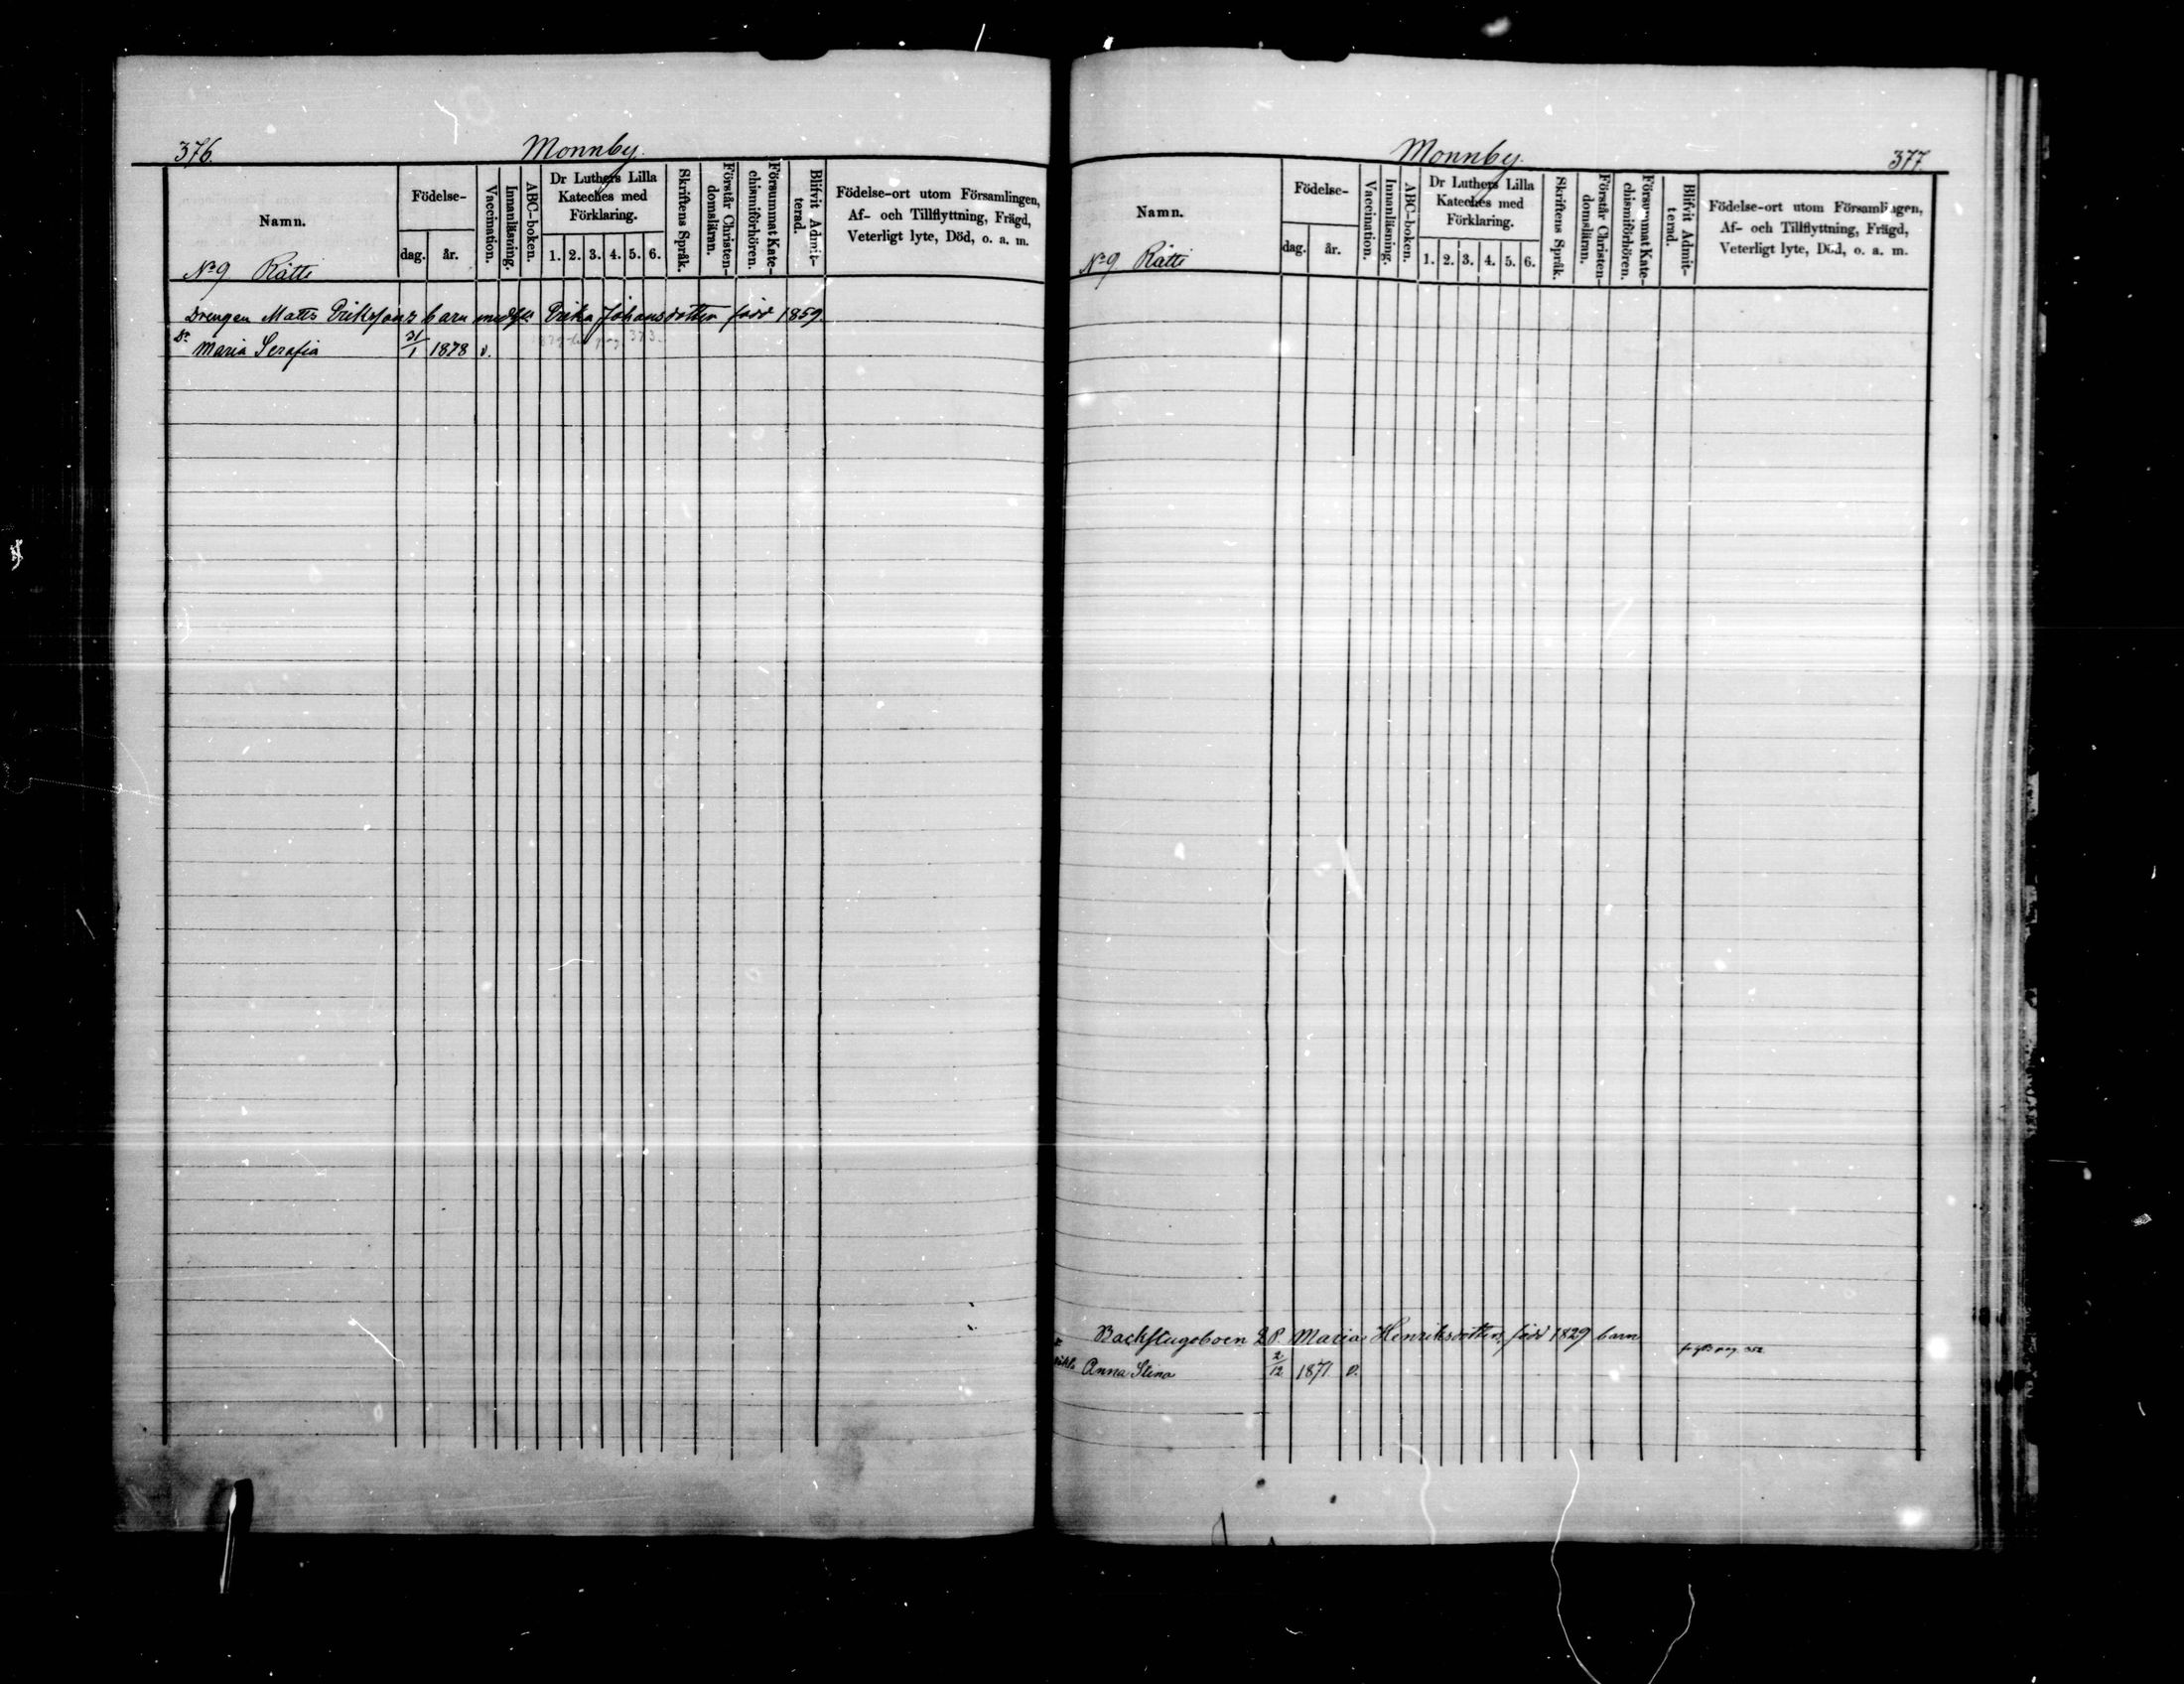 376.
Monnby.
Namn.
Födelse-
dag.
år.
Vaccination.
Innanläsning.
ABC-boken.
Dr Luthers Lilla
Kateches med
Förklaring.
1. 2. 3. 4. 5. 6.
Skriftens Språk.
Förstår Christen-
domsläran.
Försummat Kate-
chismiförhören.
Blifvit Admit-
terad.
Födelse-ort utom Församlingen,
Af- och Tillflyttning, Frägd,
Veterligt lyte, Död, o. a. m.
No 9 Rätti
Drengen Matts Erikssons barn med Erika Johansdotter född 1859.
Dr Maria Serafia 31/1 1878 v.
pag. 373.
Monnby.
377.
Namn.
Födelse-
dag.
år.
Vaccination.
Innanläsning.
ABC-boken.
Dr Luthers Lilla
Kateches med
Förklaring.
1. 2. 3. 4. 5. 6.
Skriftens Språk.
Förstår Christen-
domsläran.
Försummat Kate-
chismiförhören.
Blifvit Admit-
terad.
Födelse-ort utom Församlingen,
Af- och Tillflyttning, Frägd,
Veterligt lyte, Död, o. a. m.
No 9 Rätti
Backstugoboen Maria Henriksdotters född 1829 barn
Anna Stina 2/12 1871 v.
pag. 352